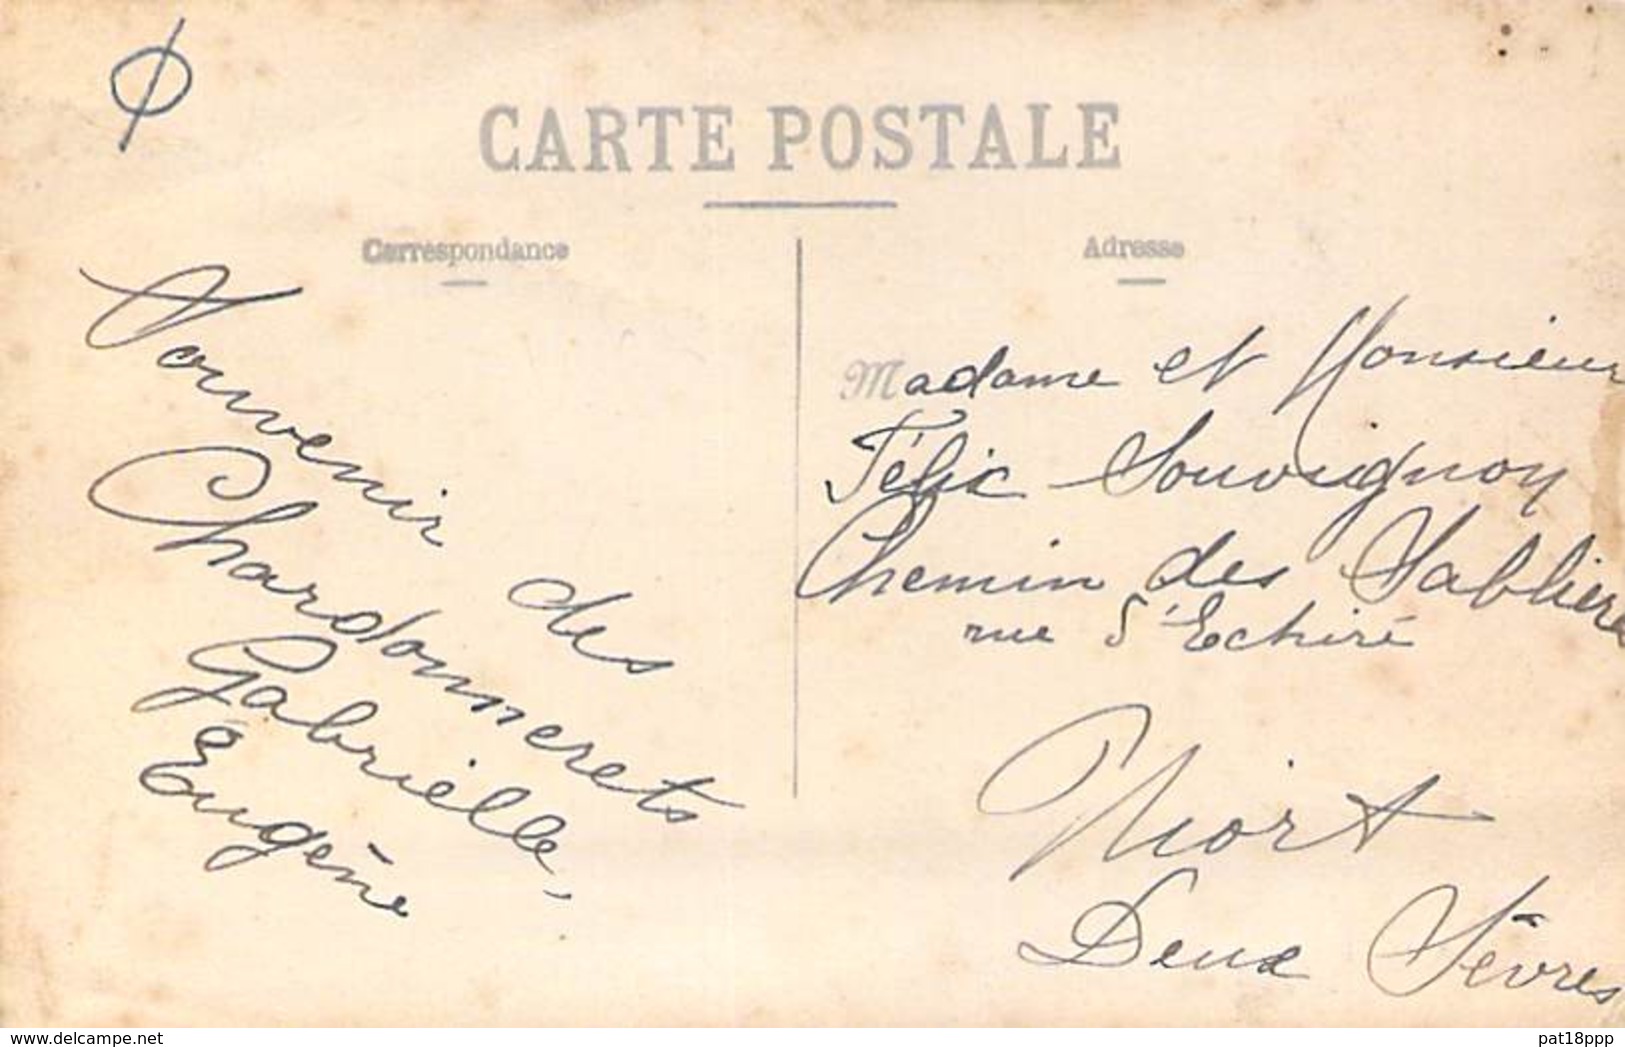 CARTE POSTALE
Correspondance
Souvenir des
Chardonnerets
Gabriélle,
Eugène
Adresse
Madame et Monsieur
Félix Souvignon
Chemin des Sablières
rue d'Echiré
Niort
Deux Sèvres
www.delcampe.net
pat18ppp